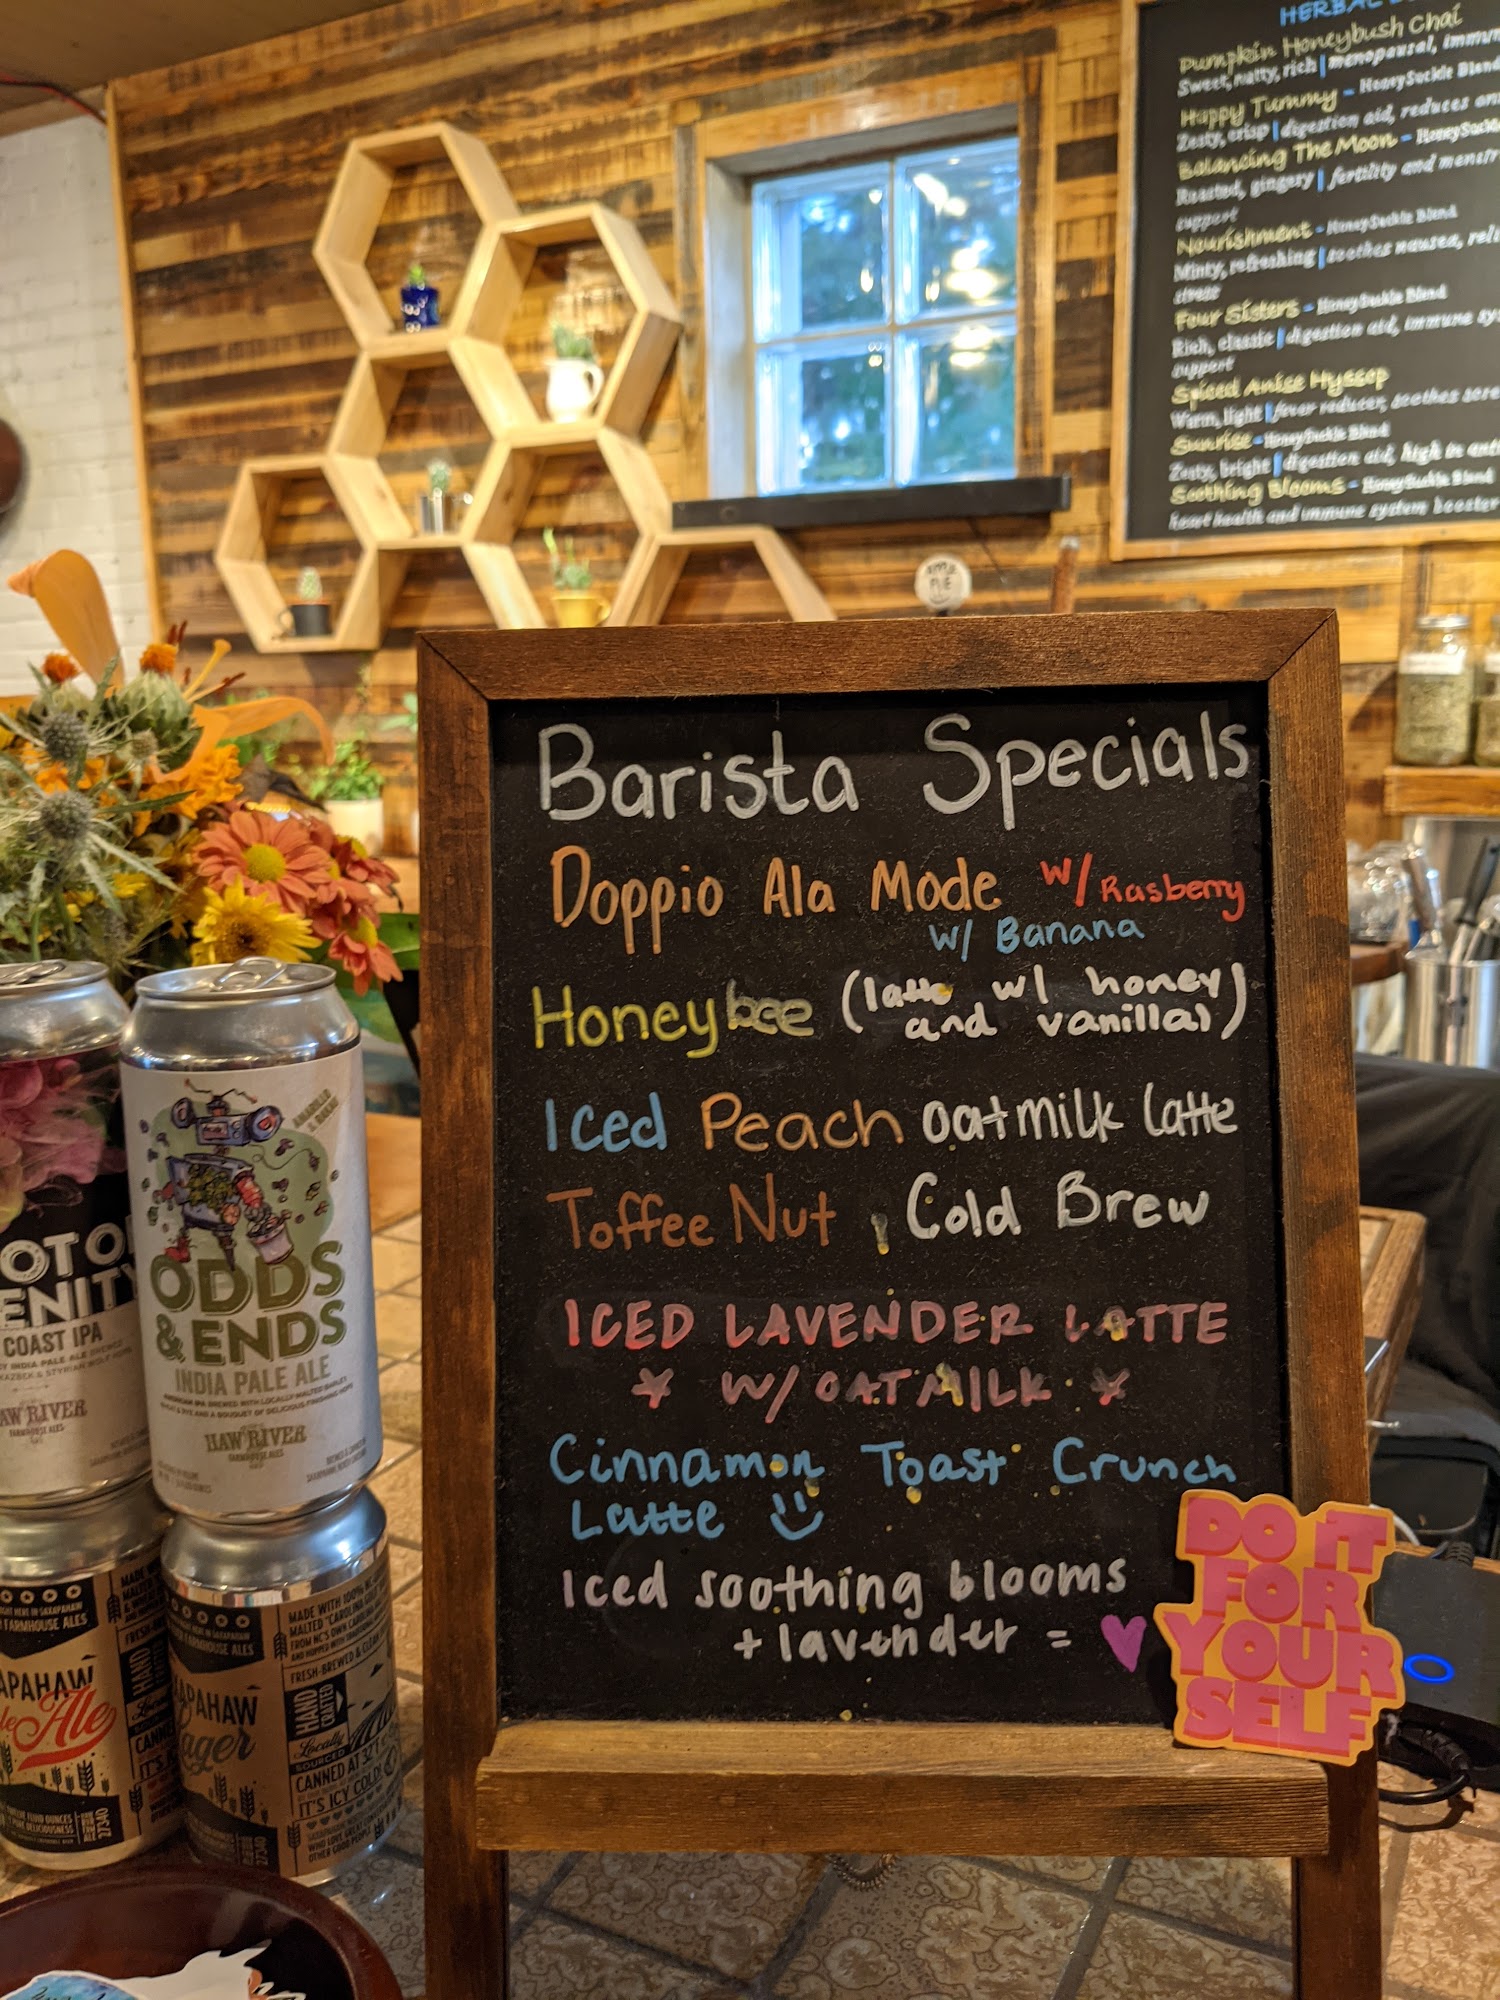 HERBAL
Pumpkin Honeybush Chai
Sweet, nutty, rich | menopausal,
Happy Tummy - HoneySuckle Blend
Zesty, crisp | digestion aid, reduces
Balancing The Moon -
Roasted, gingery | fertility and
support
Nourishment - HoneySuckle Blend
Minty, refreshing | soothes nausea,
stress
Four Sisters - HoneySuckle Blend
Rich, classic | digestion aid, immune
support
Spiced Anise Hyssop
Warm, light | fever reducer, soothes
Sunrise - HoneySuckle Blend
Zesty, bright | digestion aid, high in
Soothing Blooms - HoneySuckle Blend
heart health and immune system booster
Barista Specials
Doppio Ala Mode w/ Rasberry
w/ Banana
Honeybee (latte w/ honey
and vanilla!)
Iced Peach oatmilk latte
Toffee Nut Cold Brew
ICED LAVENDER LATTE
* W/ OATMILK *
Cinnamon Toast Crunch
Latte
Iced soothing blooms
+ lavender =
DO IT
FOR
YOUR
SELF
COAST IPA
ODDS
& ENDS
INDIA PALE ALE
HAW RIVER
FARMHOUSE ALES
FARMHOUSE ALES
Ale
MADE WITH 100% NC
MALTED
FRESH-BREWED &
HAND
CRAFTED
Locally
SOURCED
CANNED AT 32°F
IT'S ICY COLD!
27340
27340